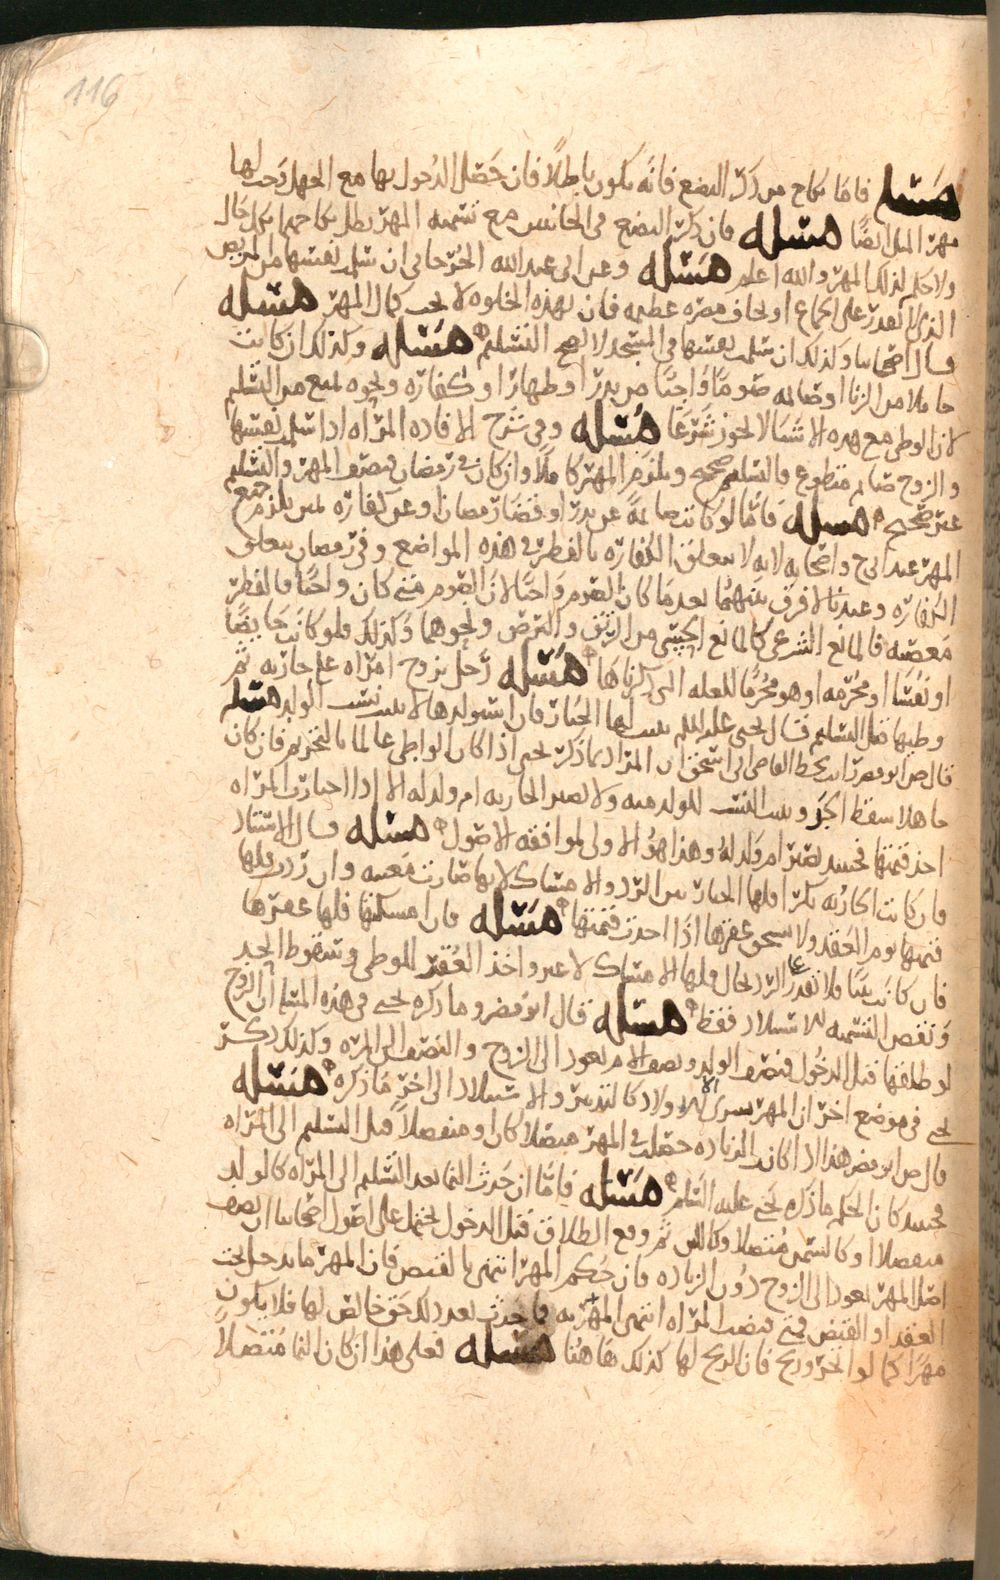 116
مسله فاما نكاح من ذكر البضع فانه يكون باطلا فان حصل الدخول بها مع الجهل وجب لها
مهر المثل ايضا مسله فان ذكر البضع في الجانبين مع تسميه المهر بطل نكاحهما بكل حال
ولا حكم لذلك المهر والله اعلم مسله وعن ابي عبد الله الجرجاني ان سلمت نفسها من المريض
الذي لا يقدر على الجماع او يخاف مضره عظيمه فان بهذه الخلوه لا يجب كمال المهر مسله
قال اصحابنا وكذلك ان سلمت نفسها في المسجد لا يصح التسليم مسله وكذلك ان كانت
حاملا من الزنا او صايمه صوما واجبا من نذر او ظهار او كفاره ونحوه لمنع من التسليم
لان الوطي مع هذه الاشيا لا يجوز شرعا مسله وفي شرح الافاده المراه اذا سلمت نفسها
والزوج صايم متطوع فالتسليم صحيح ويلزم المهر كاملا وان كان في رمضان فنصف المهر والتسليم
غير صحيح مسله فاما لو كانت صايمة عن نذر او قضا رمضان او عن كفاره لمن يلزم جميع
المهر عند ابي ح واصحابه لانه لا يتعلق الكفاره بالفطر في هذه المواضع وفي رمضان يتعلق
الكفاره وعندنا لا فرق بينهما بعد ما كان الصوم واجبا لان الصوم متى كان واجبا فالفطر
معصيه فالمانع الشرعي كالمانع الحسي من الرتق والمرض ونحوهما وكذلك لو كانت حايضا
او نفسا او محرمه او هو محرما للعله التي ذكرناها مسله رجل تزوج امراه على جاريه ثم
وطيها قبل التسليم قال يحيى عليه السلم يثبت لها الخيار فان استولدها لا يثبت نسب الولد مسله
قال ص ابو مضر رايت بخط القاضي ابي اسحق ان المراد بما ذكر يحيى اذا كان الواطي عالما بالتحريم فان كان
جاهلا سقط الحد ويثبت النسب للولد منه ولا تصير الجاريه ام ولد له الا اذا اختارت المراه
اخذ قيمتها فحينيذ تصير ام ولد له وهذا هو الاولى لموافقه الاصول مسله قال الاستاذ
فان كانت الجاريه بكرا فلها الخيار بين الرد والامساك لانها صارت معيبه وان ردت فلها
قيمتها يوم العقد ولا تستحق عقرها اذا اخذت قيمتها مسله فان امسكتها فلها عقرها
فان كانت ثيبا فلا تقدر على الرد بحال ولها الامساك لا غير واخذ العقر للوطي وسقوط الحد
ونقص التسميه للاستيلاد فقط مسله قال ابو مضر وما ذكره يحيى في هذه المسله ان الزوج
لو طلقها قبل الدخول فنصف الولد ونصف الام يعود الى الزوج والنصف الى المره وكذلك ذكر
يحيى في موضع اخر ان المهر يسري الى الاولاد كالتدبير والاستيلاد الى اخر ما ذكره مسله
قال ص ابو مضر هذا اذا كانت الزياده حصلت في المهر متصلا كان او منفصلا قبل التسليم الى المراه
فحينيذ كان الحكم ما ذكره يحيى عليه السلم مسله فاما ان حدث النما بعد التسليم الى المراه كالولد
منفصلا او كالسمن متصلا وكاللبن ثم وقع الطلاق قبل الدخول يحتمل على اصول اصحابنا ان نصف
اصل المهر يعود الى الزوج دون الزياده فان حكم المهر انتهى بالقبض فان المهر ما يدخل تحت
العقد او القبض فمتى قبضت المراه انتهى المهر به فما حدث بعد ذلك حق خالص لها فلا يكون
مهرا كما لو اتجر وربح فان الربح لها كذلك هاهنا مسله فعلى هذا ان كان النما متصلا